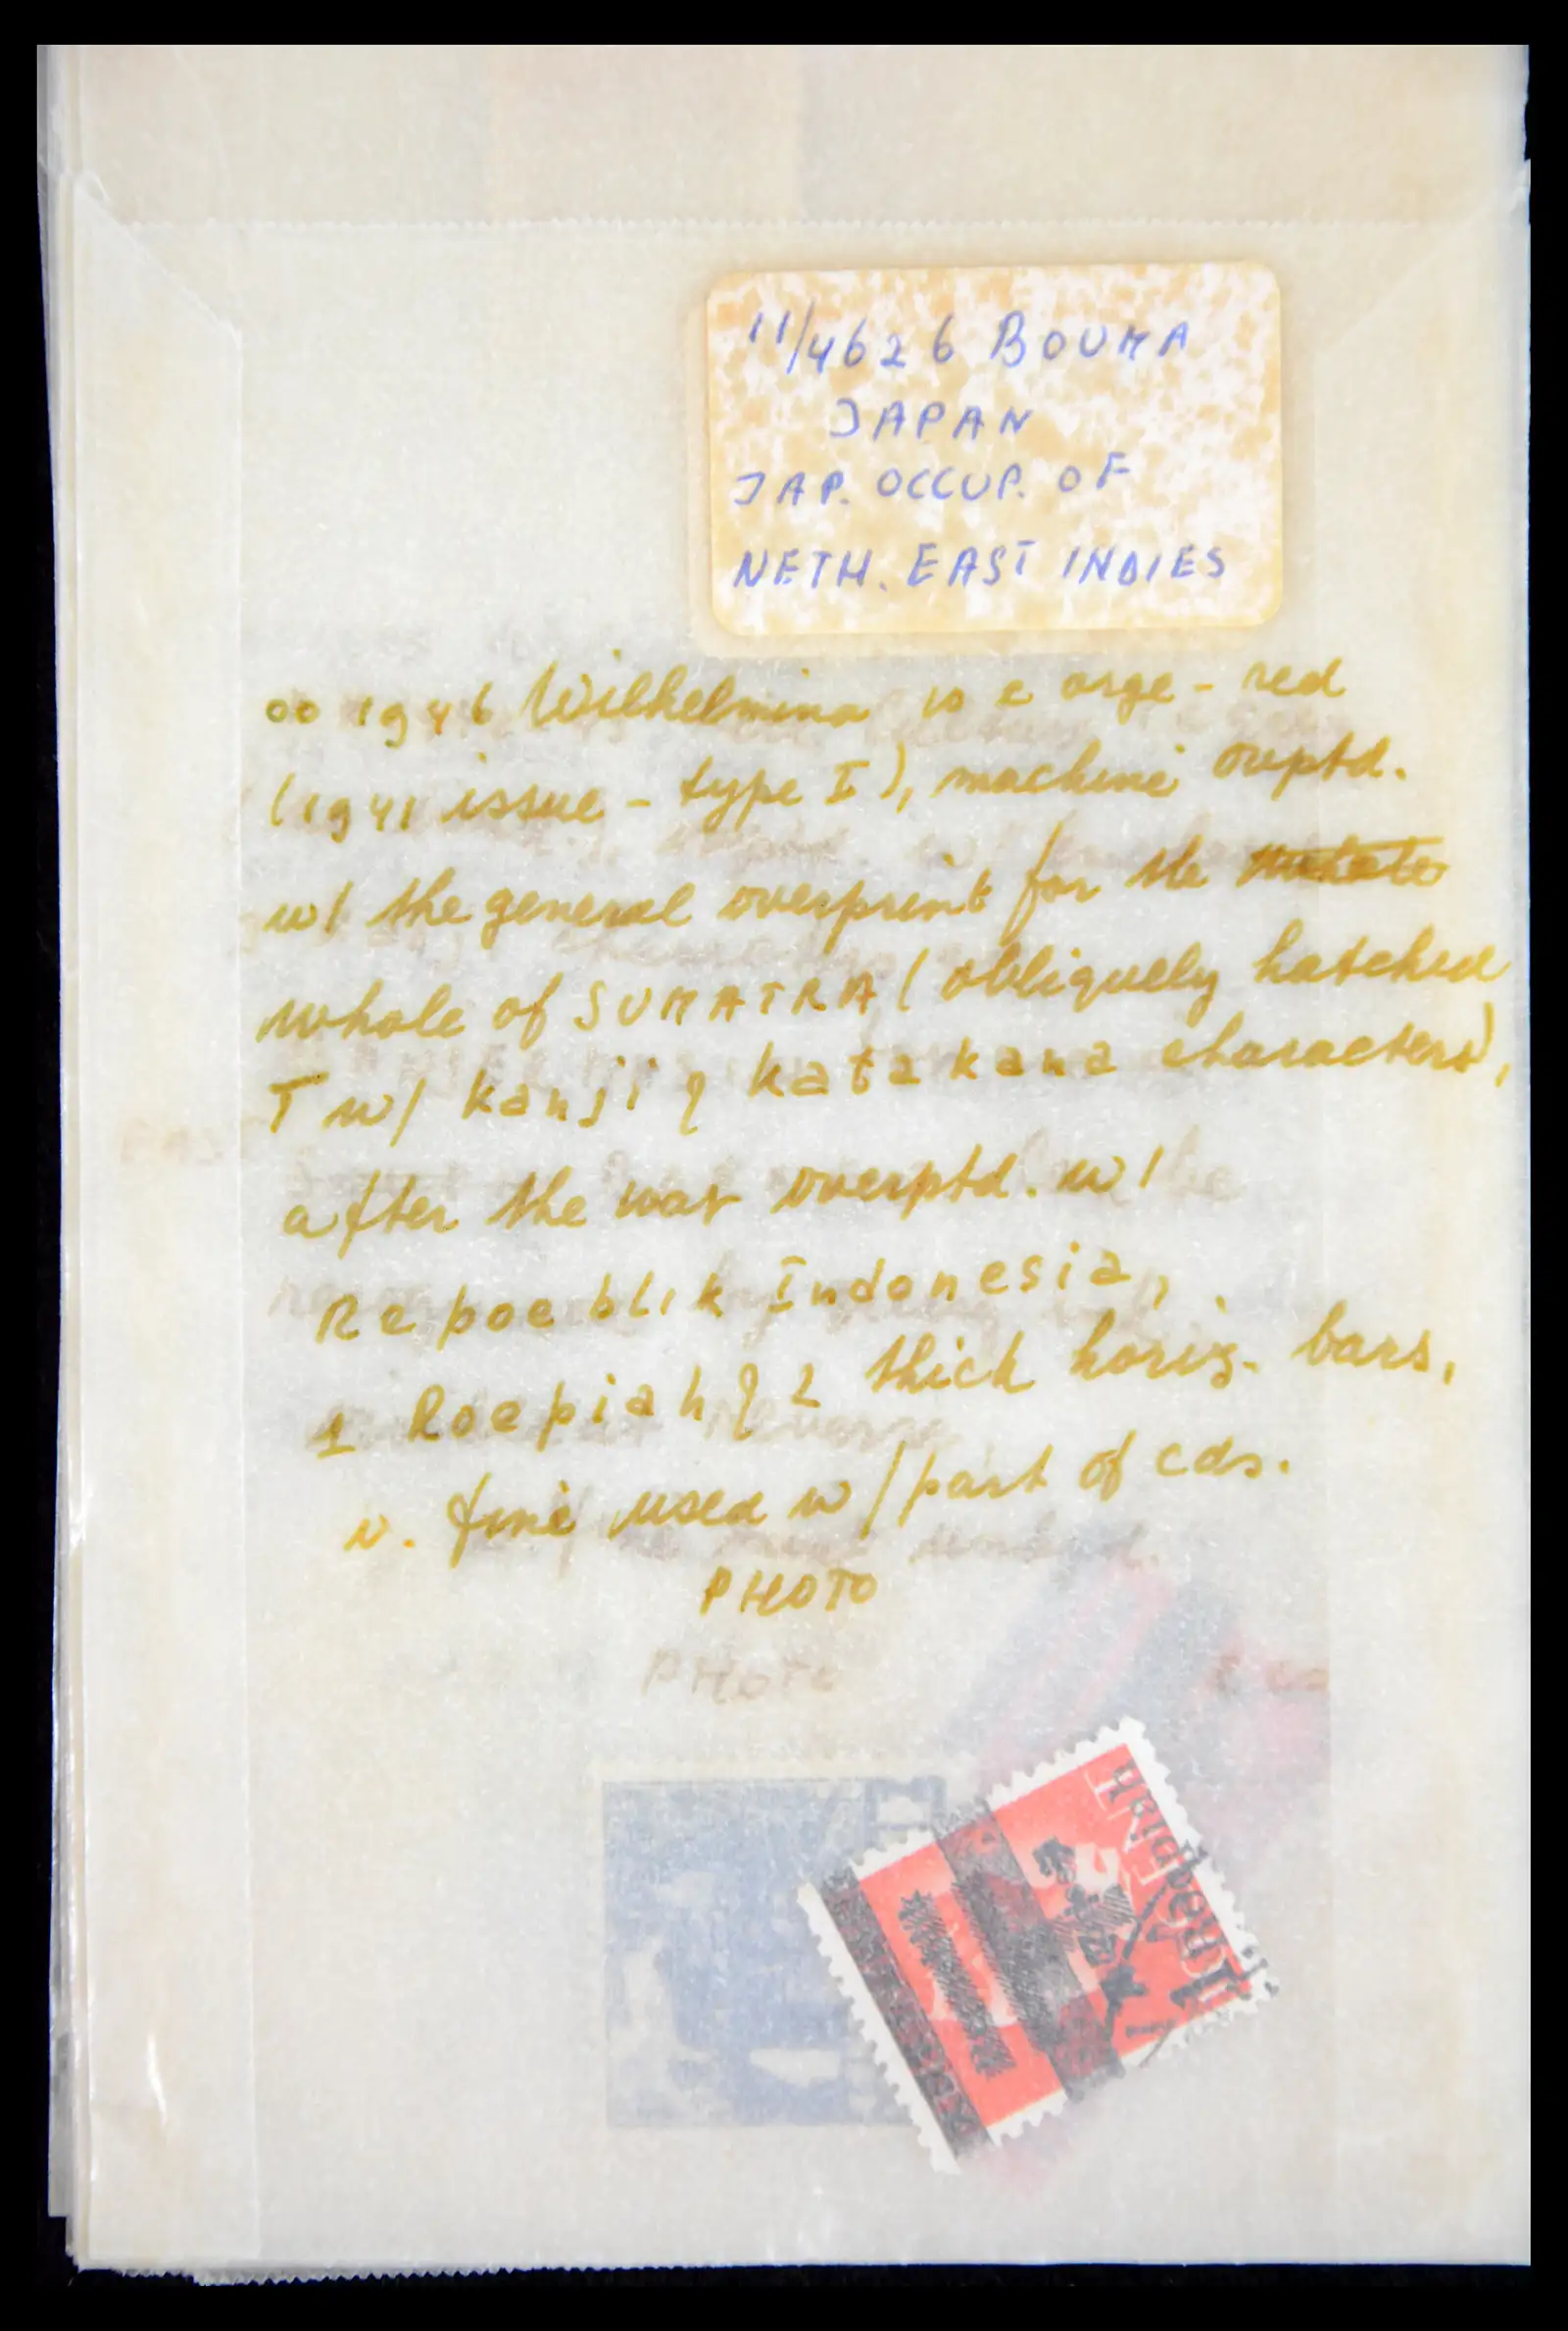 11/4626 BOUMA
JAPAN
JAP. OCCUP. OF
NETH. EAST INDIES
oo 1946 Wilhelmina 10 c orge-red
(1941 issue - type I), machine ovptd.
w/ the general overprint for the
whole of SUMATRA (obliquely hatched
T w/ kanji & katakana characters),
after the war overptd. w/
Repoeblik Indonesia,
1 Roepiah & 2 thick horiz. bars,
v. fine used w/ part of cds.
PHOTO
PHOTO
1 Roepiah